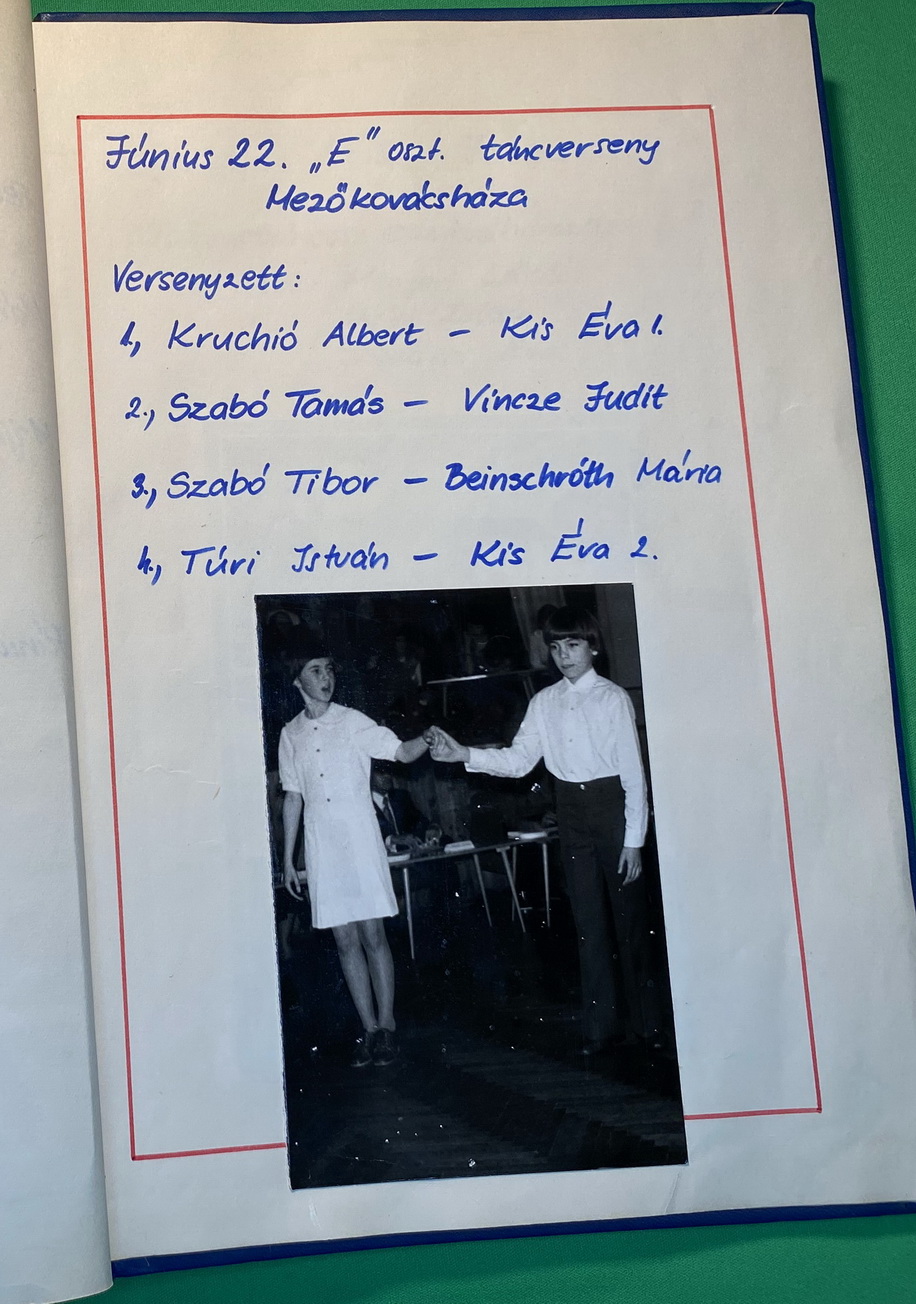 Június 22. „E" oszt. táncverseny
Mezőkovácsháza
Versenyzett:
1., Kruchió Albert - Kis Éva 1.
2., Szabó Tamás - Vincze Judit
3., Szabó Tibor - Beinschróth Mária
4., Túri István - Kis Éva 2.